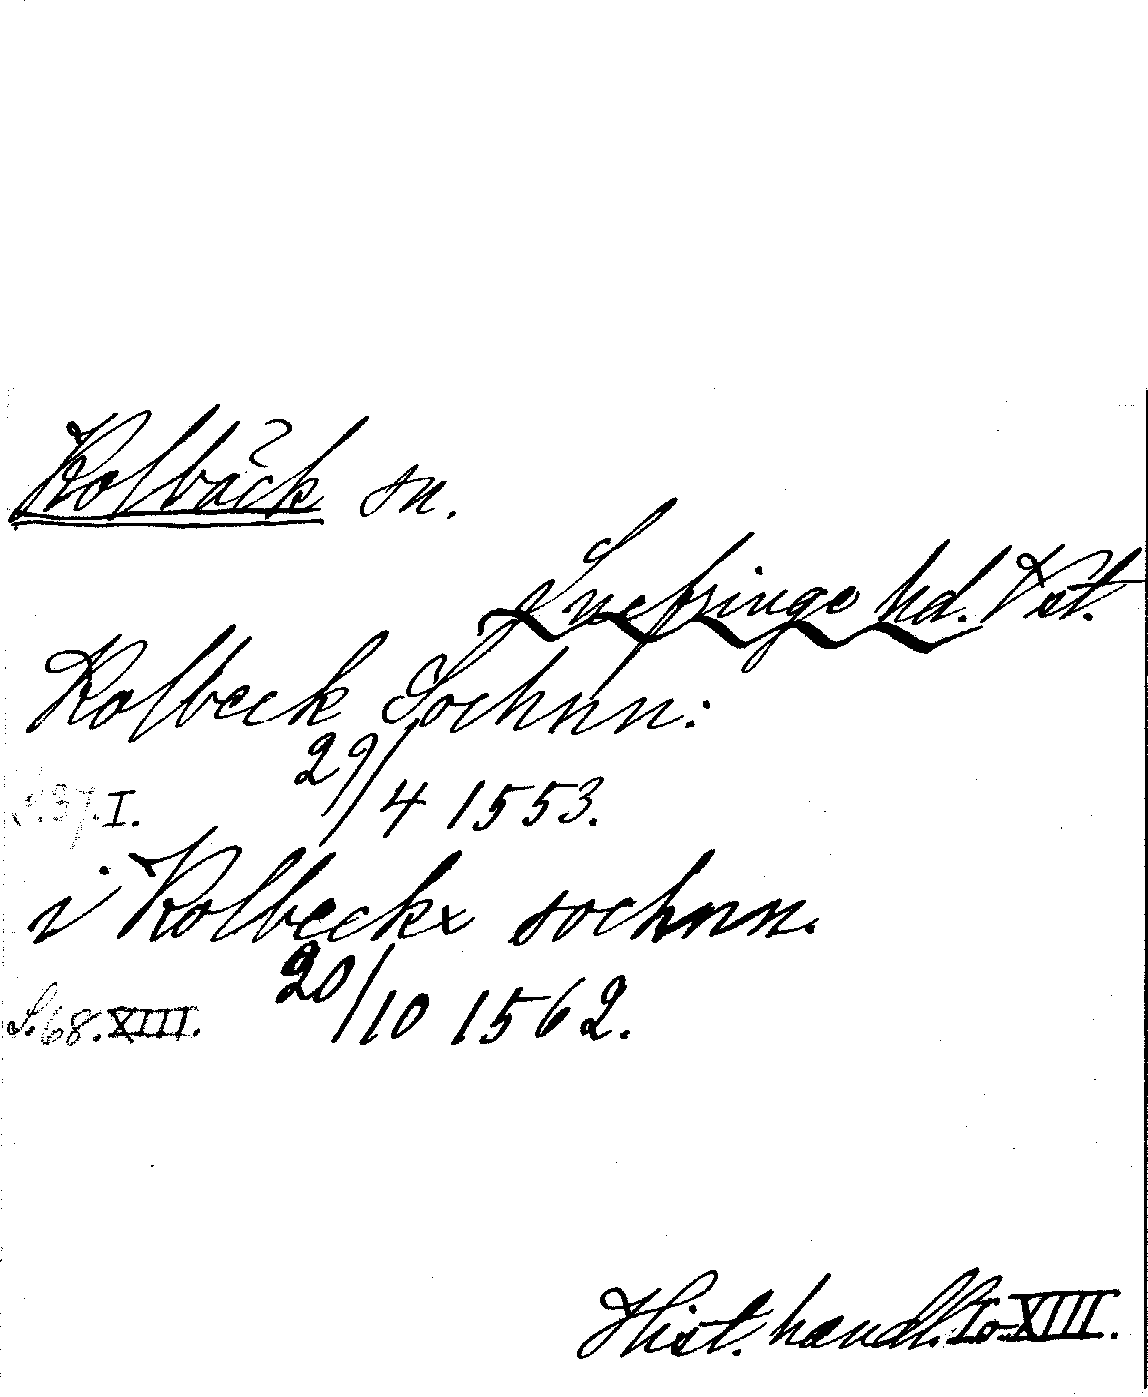 Kolbäck sn.
Snefringe hd. Vst.
Kolbeck Sochnn:
29/4 1553.
S.37.I.
i Kolbeckx sochnn.
20/10 1562.
S.68.XIII.
Hist. handl. I o XIII.